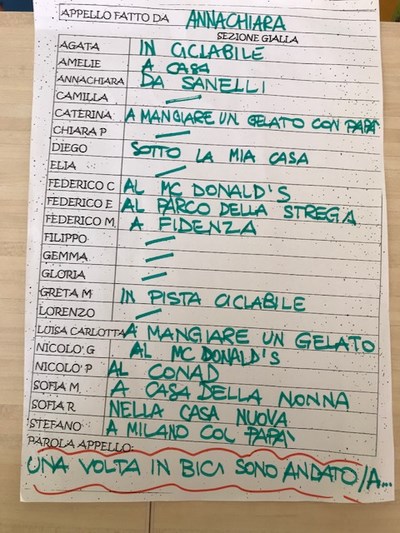 APPELLO FATTO DA ANNACHIARA
SEZIONE GIALLA
AGATA IN CICLABILE
AMELIE A CASA
ANNACHIARA DA SANELLI
CAMILLA —
CATERINA A MANGIARE UN GELATO CON PAPÀ
CHIARA P —
DIEGO SOTTO LA MIA CASA
ELIA —
FEDERICO C AL MC DONALD'S
FEDERICO E AL PARCO DELLA STREGA
FEDERICO M. A FIDENZA
FILIPPO —
GEMMA —
GLORIA —
GRETA M IN PISTA CICLABILE
LORENZO —
LUISA CARLOTTA A MANGIARE UN GELATO
NICOLO' G AL MC DONALD'S
NICOLO' P AL CONAD
SOFIA M A CASA DELLA NONNA
SOFIA R NELLA CASA NUOVA
STEFANO A MILANO COL PAPÀ
PAROLA APPELLO:
UNA VOLTA IN BICI SONO ANDATO/A...